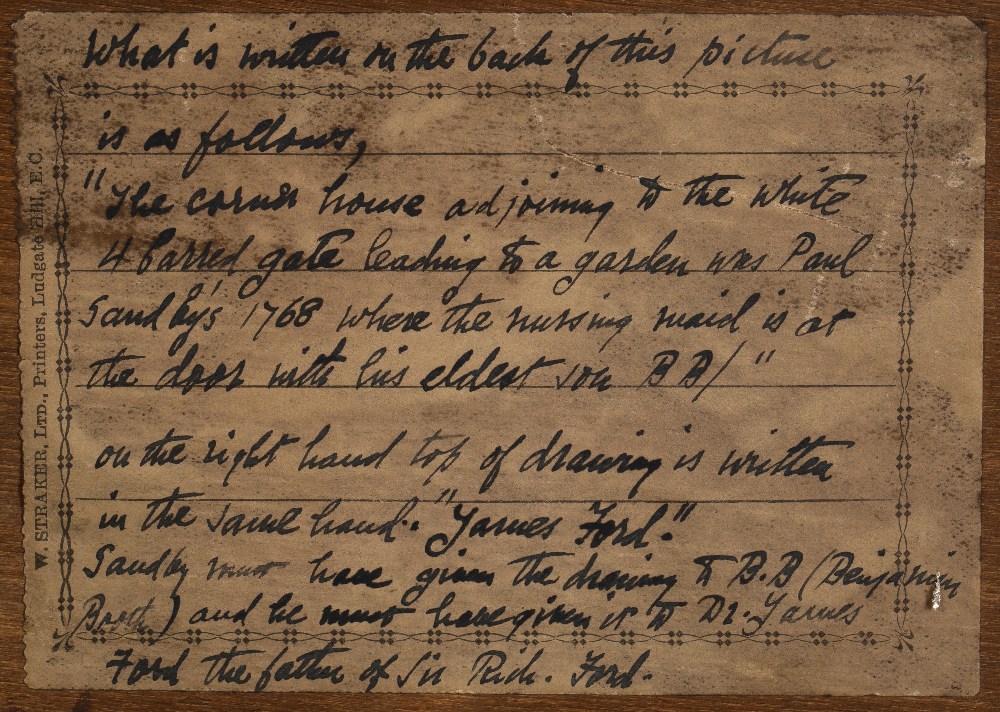 What is written on the back of this picture
is as follows,
"The corner house adjoining to the white
4 barred gate leading to a garden was Paul
Sandby's 1768 where the nursing maid is at
the door with his eldest son B B/"
on the right hand top of drawing is written
in the same hand. "James Ford."
Sandby must have given the drawing to B.B (Benjamin
Booth) and he must have given it to Dr. James
Ford the father of Sir Rich. Ford.
W. STRAKER, LTD., Printers, Ludgate Hill, E.C.